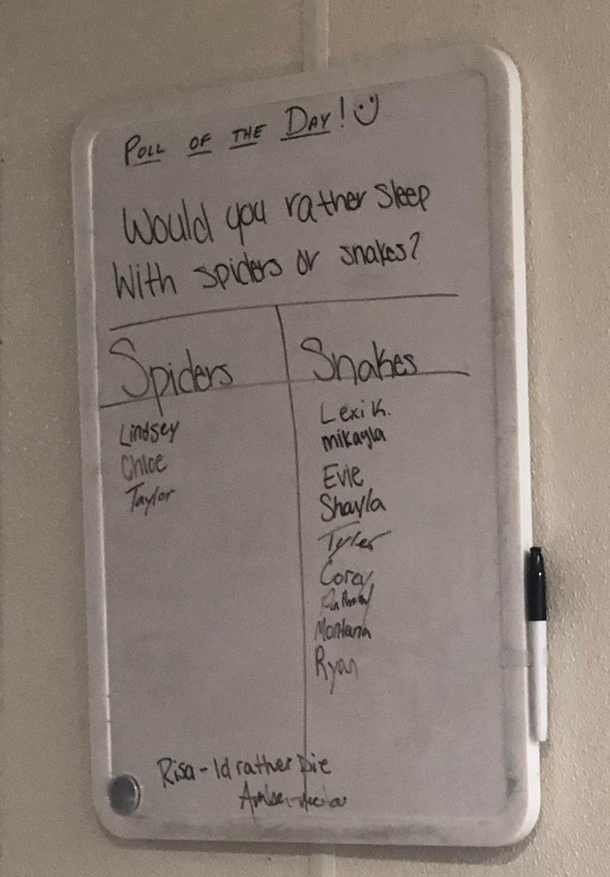 POLL OF THE DAY! :)
Would you rather sleep
With spiders or snakes?
Spiders Snakes
Lindsey
Chloe
Taylor
Lexi K.
mikayla
Evie
Shayla
Tyler
Corey
Montana
Ryan
Risa - Id rather Die
Amber